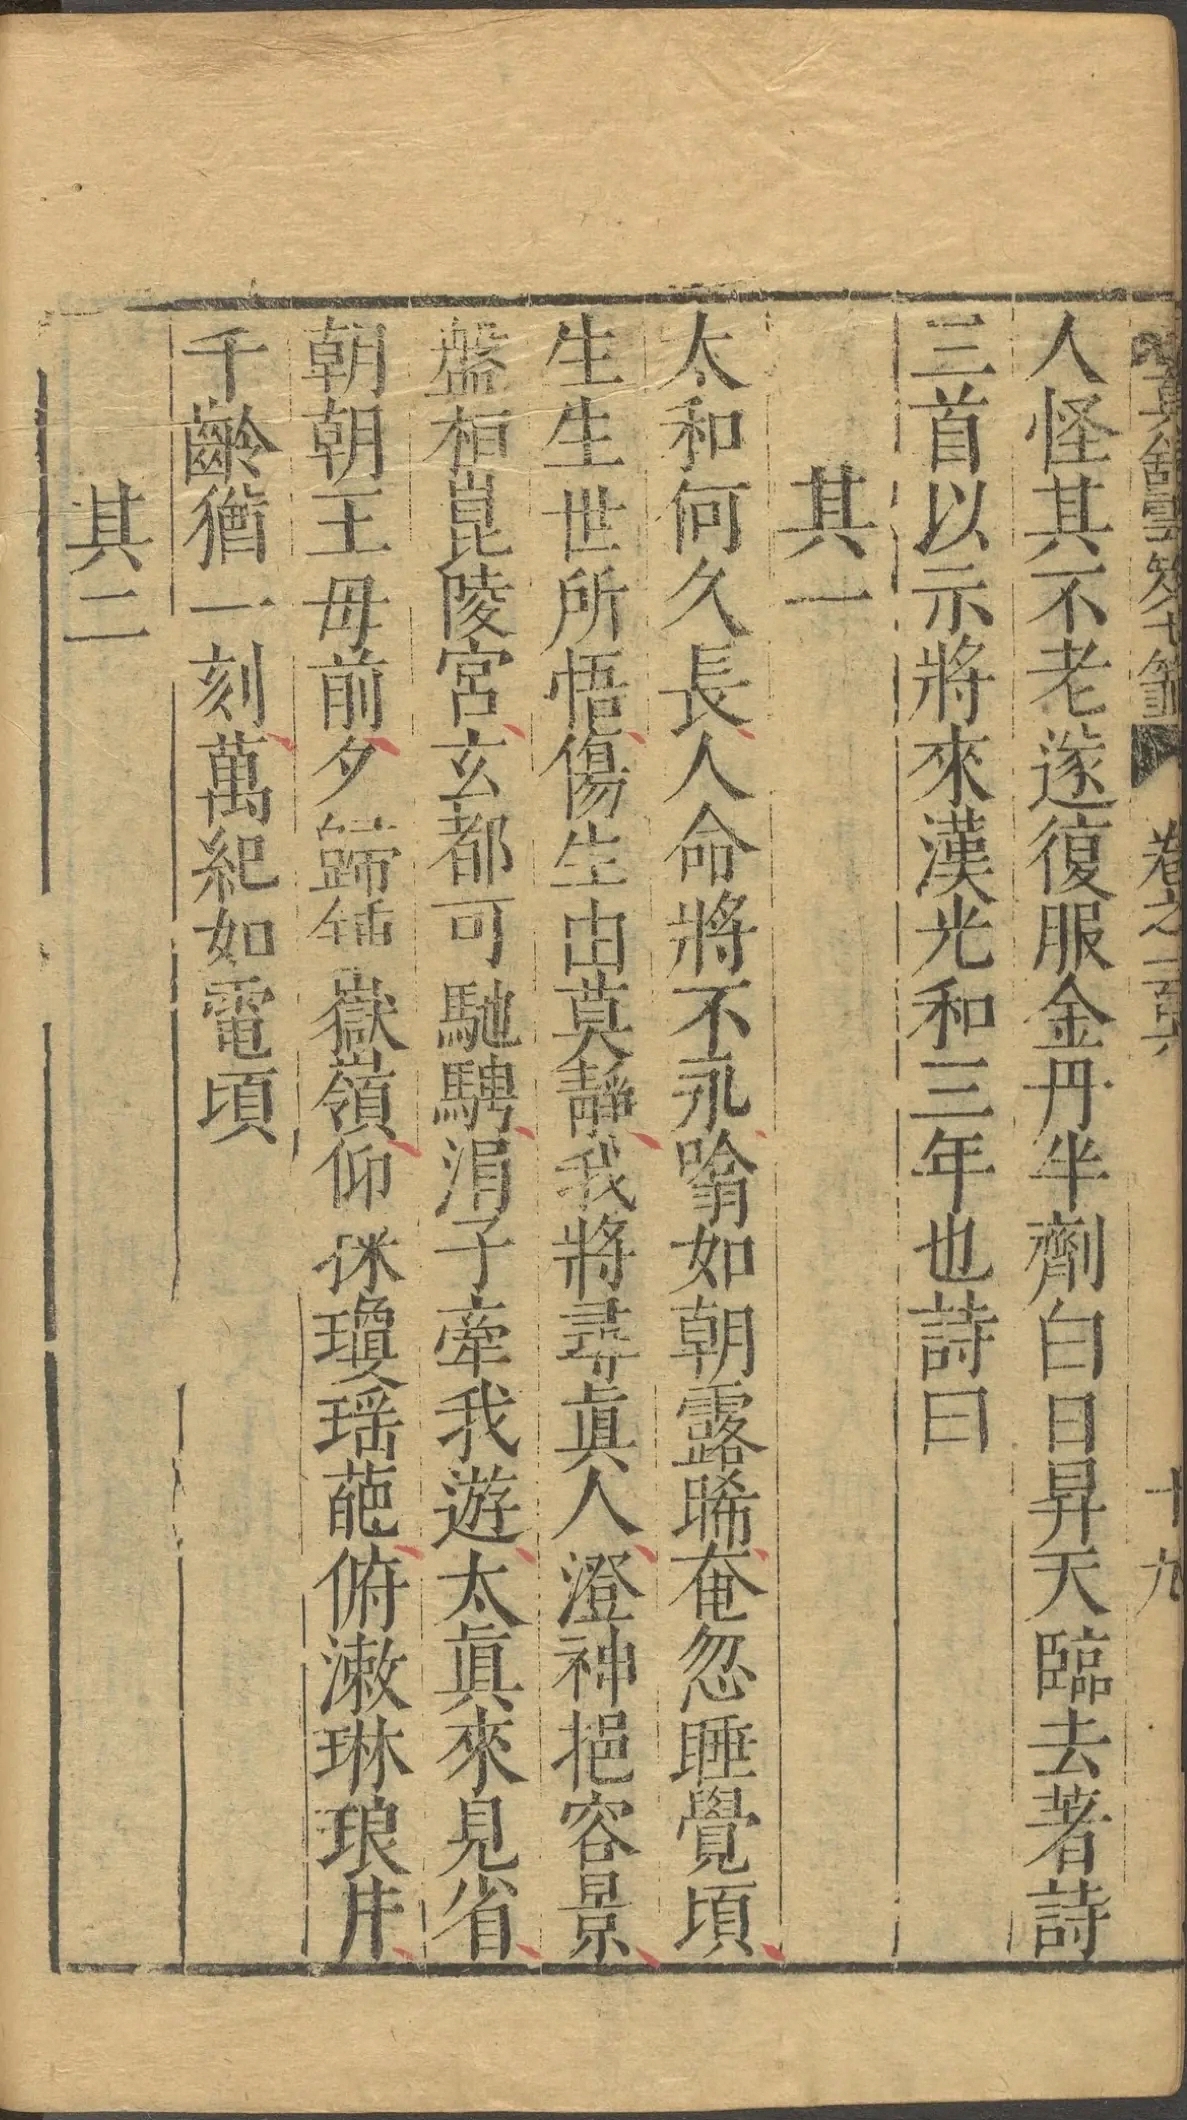 真館雲笈七籤 卷之一百六 十九
人怪其不老遂復服金丹半劑白日昇天臨去著詩
三首以示將來漢光和三年也詩曰
其一
太和何久長人命將不永噏如朝露晞奄忽睡覺頃
生生世所悟傷生由莫靜我將尋真人澄神挹容景
盤桓崑陵宮玄都可馳騁涓子牽我遊太真來見省
朝朝王母前夕歸鍾嶽嶺仰採瓊瑶葩俯漱琳琅井
千齡猶一刻萬紀如電頃
其二